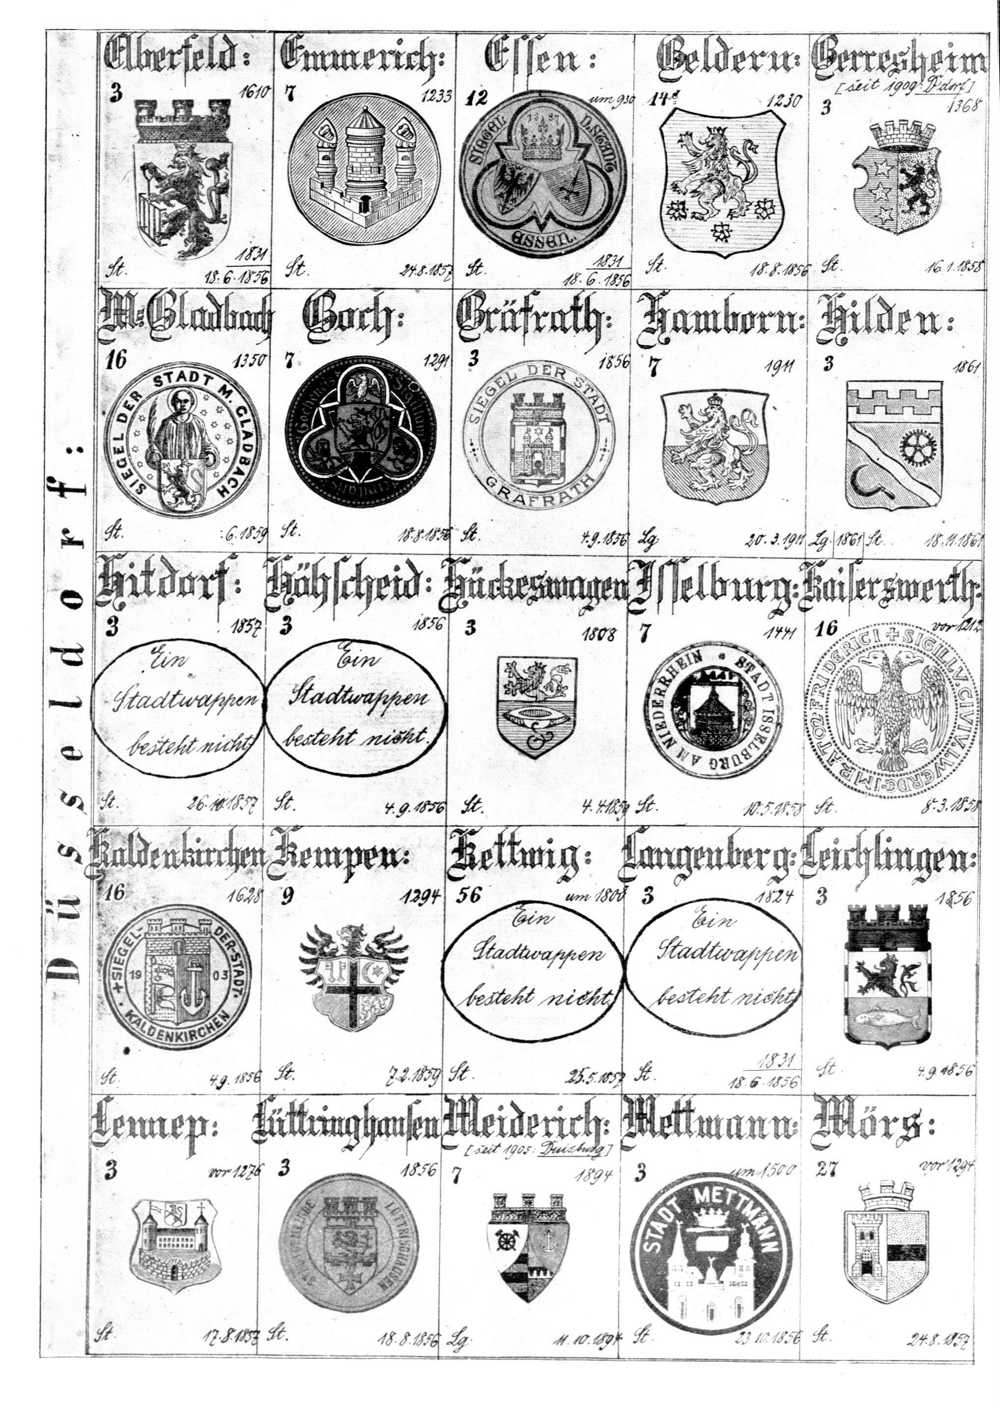 Düsseldorf:
Elberfeld:
3 1610
St. 1831
18.6.1856
Emmerich:
7 1233
St. 24.8.1857
Essen:
12 um 930
SIEGEL D. STADT
ESSEN.
St. 1831
18.6.1856
Geldern:
14 1230
St. 18.8.1856
Gerresheim
[seit 1909: D'dorf]
3 1368
St. 16.1.1858
M=Gladbach
16 1350
SIEGEL DER STADT M. GLADBACH
St. .6.1859
Goch:
7 1291
St. 18.8.1856
Gräfrath:
3 1856
SIEGEL DER STADT
GRÄFRATH
St. 4.9.1856
Hamborn:
7 1911
Lg 20.3.1911
Hilden:
3 1861
Lg 1861 St. 18.11.1861
Hitdorf:
3 1857
Ein
Stadtwappen
besteht nicht
St. 26.10.1857
Höhscheid:
3 1856
Ein
Stadtwappen
besteht nicht.
St. 4.9.1856
Hückeswagen
3 1808
St. 4.4.1859
Isselburg:
7 1441
STADT ISSELBURG AM NIEDERRHEIN
St. 10.5.1858
Kaiserswerth:
16 vor 1212
SIGILLV. CIVIV. T. WERDE. IMPATO. FRIDERICI
St. 8.3.1858
Kaldenkirchen
16 1628
SIEGEL DER STADT
19 03
KALDENKIRCHEN
St. 4.9.1856
Kempen:
9 1294
St. 7.2.1859
Kettwig:
56 um 1800
Ein
Stadtwappen
besteht nicht
St. 25.5.1857
Langenberg:
3 1824
Ein
Stadtwappen
besteht nicht
St. 1831
18.6.1856
Leichlingen:
3 1856
St. 4.9.1856
Lennep:
3 vor 1276
St. 17.8.1857
Lüttringhausen
3 1856
STADTGEMEINDE LÜTTRINGHAUSEN
St. 18.8.1856
Meiderich:
[seit 1905: Duisburg]
7 1894
Lg. 11.10.1894
Mettmann:
3 um 1500
STADT METTMANN
St. 23.10.1856
Mörs:
27 vor 1294
St. 24.8.1857